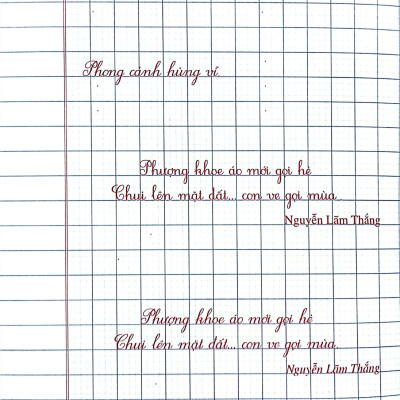 Phong cảnh hùng vĩ.
Phượng khoe áo mới gọi hè
Chui lên mặt đất... con ve gọi mùa.
Nguyễn Lãm Thắng
Phượng khoe áo mới gọi hè
Chui lên mặt đất... con ve gọi mùa.
Nguyễn Lãm Thắng